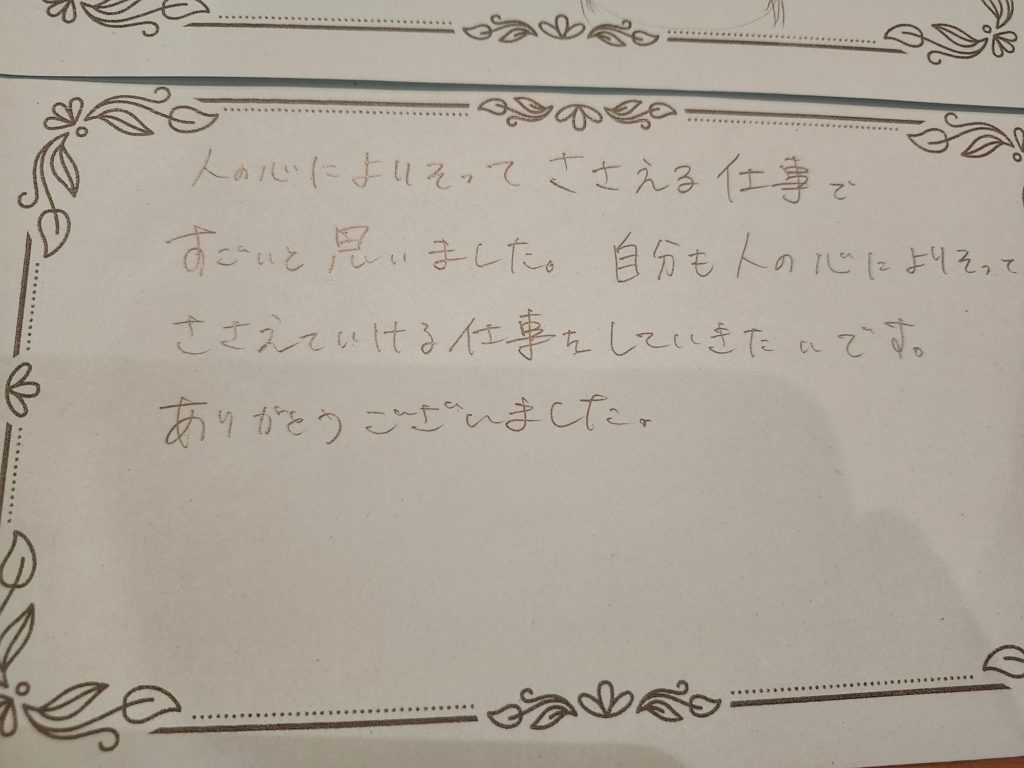 人の心によりそってささえる仕事で
すごいと思いました。自分も人の心によりそって
ささえていける仕事をしていきたいです。
ありがとうございました。